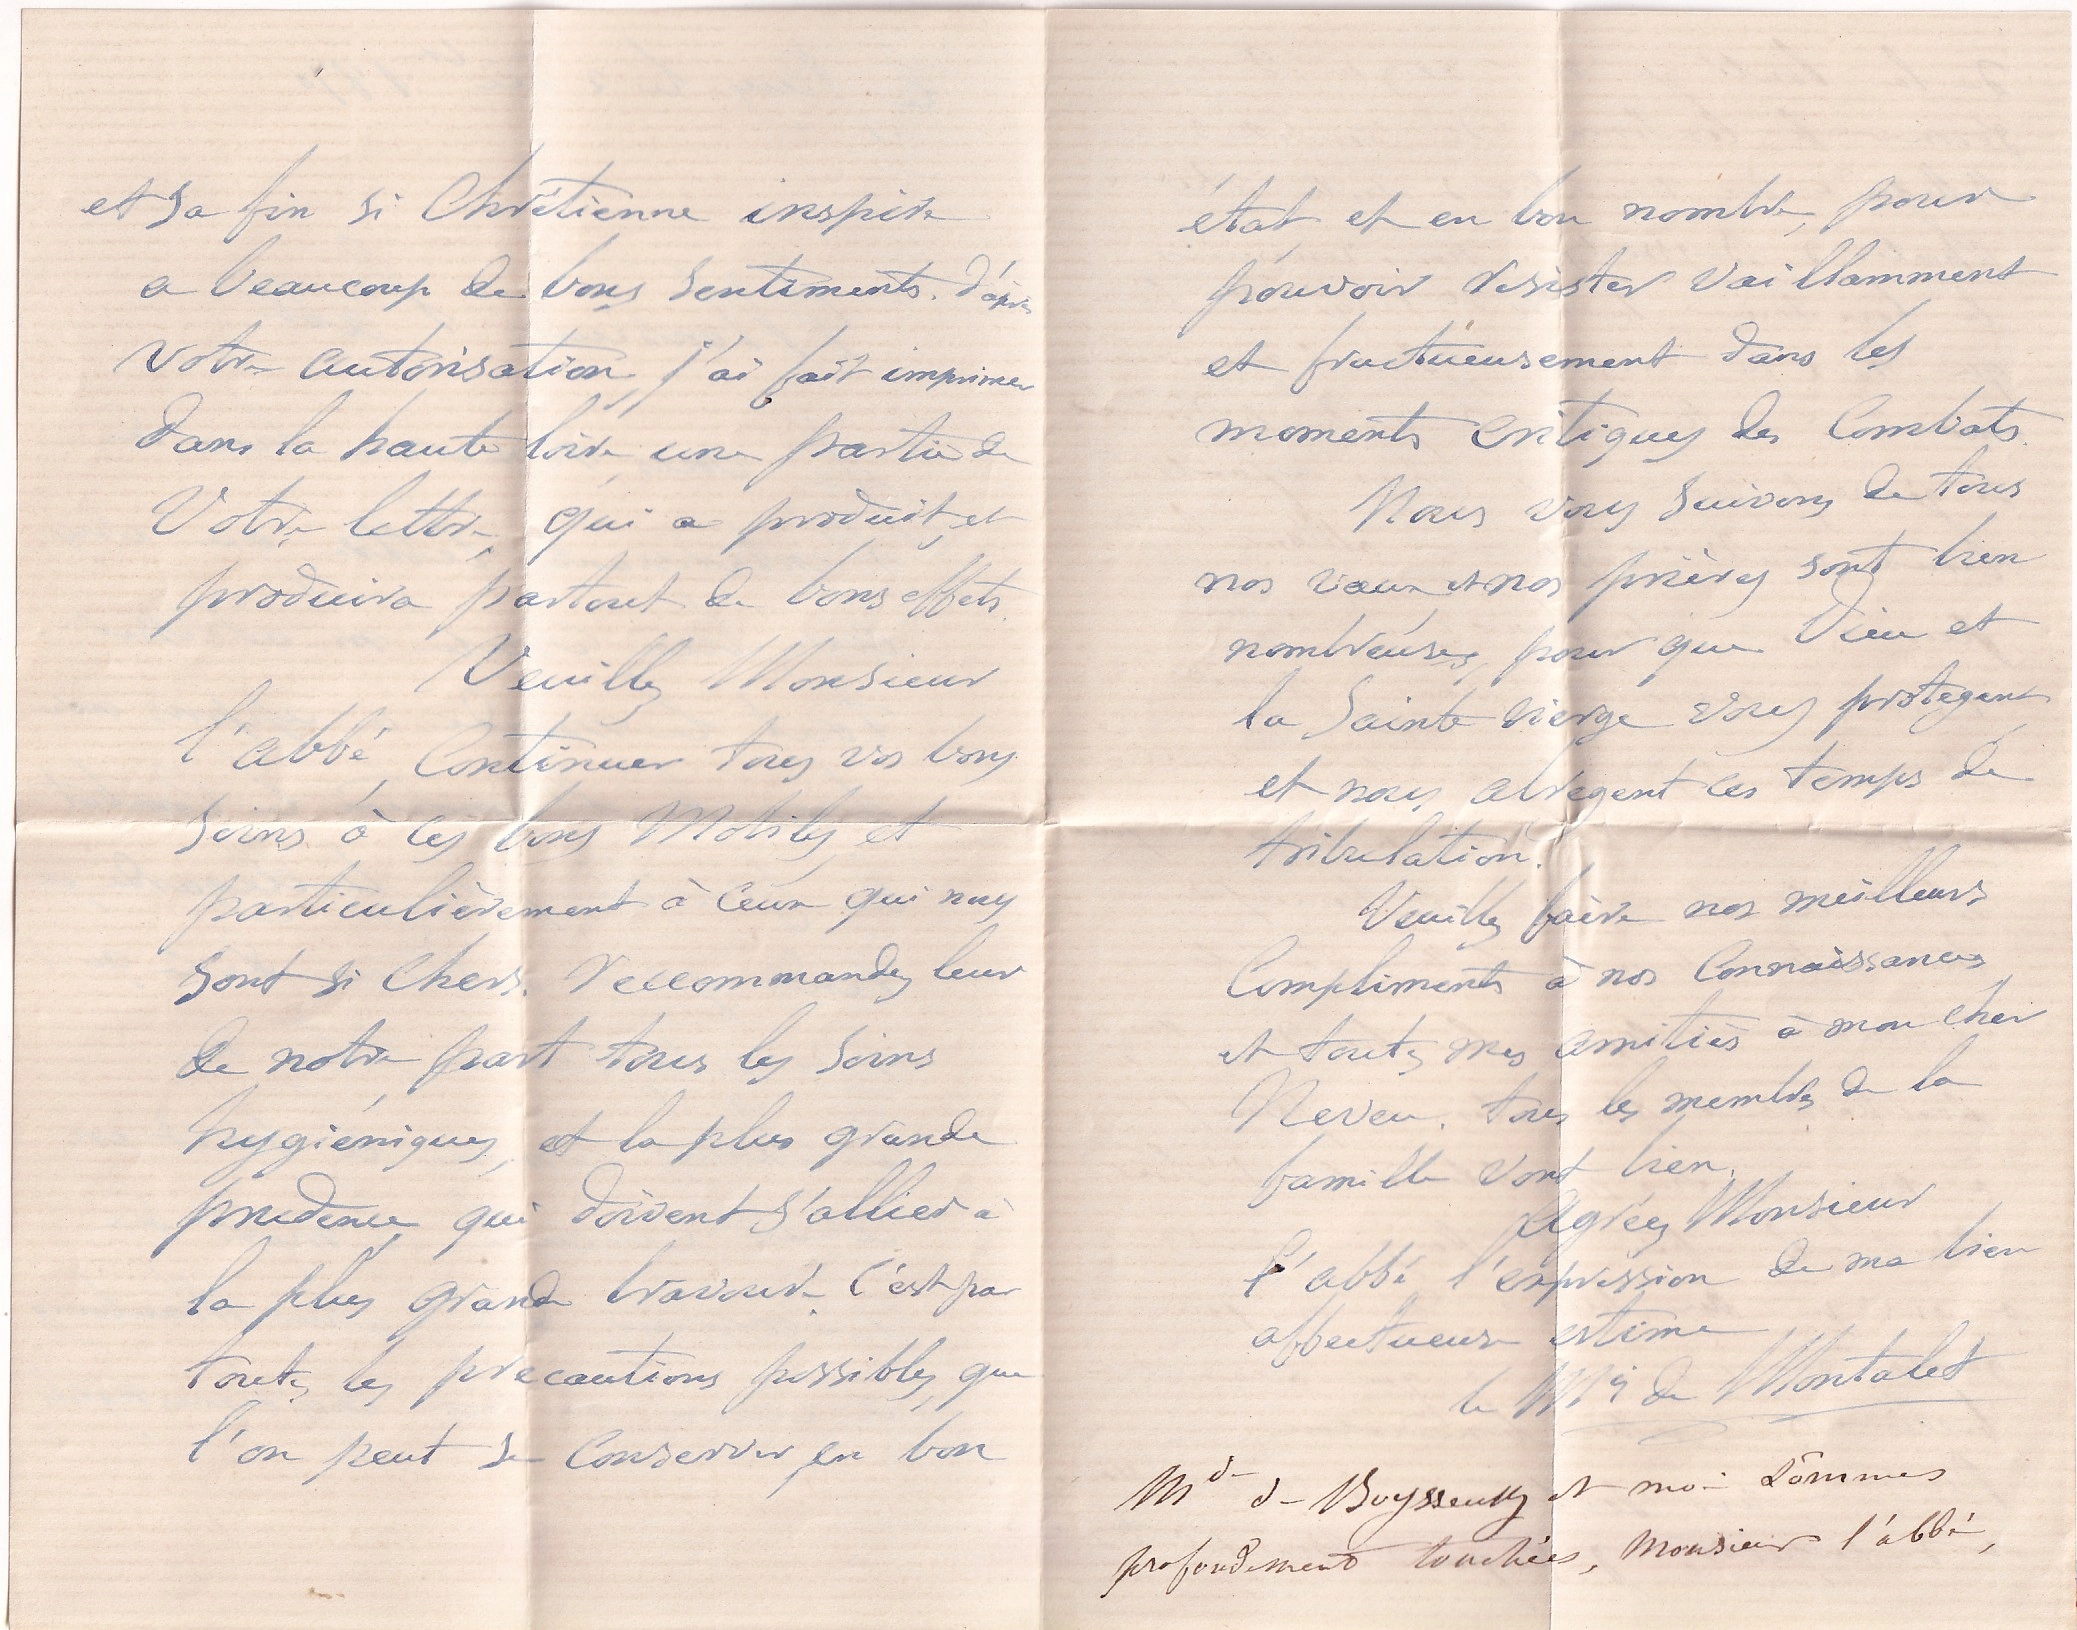 et sa fin si Chrétienne inspire
a beaucoup de bons sentiments. d'après
votre autorisation, j'ai fait imprimer
dans la haute loire une partie de
Votre lettre, qui a produit, et
produira partout de bons effets.
Veuillez Monsieur
l'abbé, Continuer tous vos bons
soins à ces bons Mobiles, et
particulièrement à ceux qui nous
sont si chers. reccommandez leur
de notre part tous les soins
hygiéniques, et la plus grande
prudence, qui doivent s'allier à
la plus grande bravoure. C'est par
toutes les précautions possibles, que
l'on peut se Conserver, en bon
état et en bon nombre, pour
pouvoir resister vaillamment
et fructueusement dans les
moments critiques des Combats.
Nous vous suivons de tous
nos vœux et nos prières sont bien
nombreuses, pour que Dieu et
la Sainte vierge vous protegent,
et nous abregent ces temps de
tribulation.
Veuillez faire nos meilleurs
Compliments à nos Connaissances,
et toutes mes amitiés à mon cher
Neveu. tous les membres de la
famille vont bien.
Agréez Monsieur
l'abbé, l'expression de ma bien
affectueuse estime
le Mis de Montalet
Mde de et moi sommes
profondément touchées, Monsieur l'abbé,